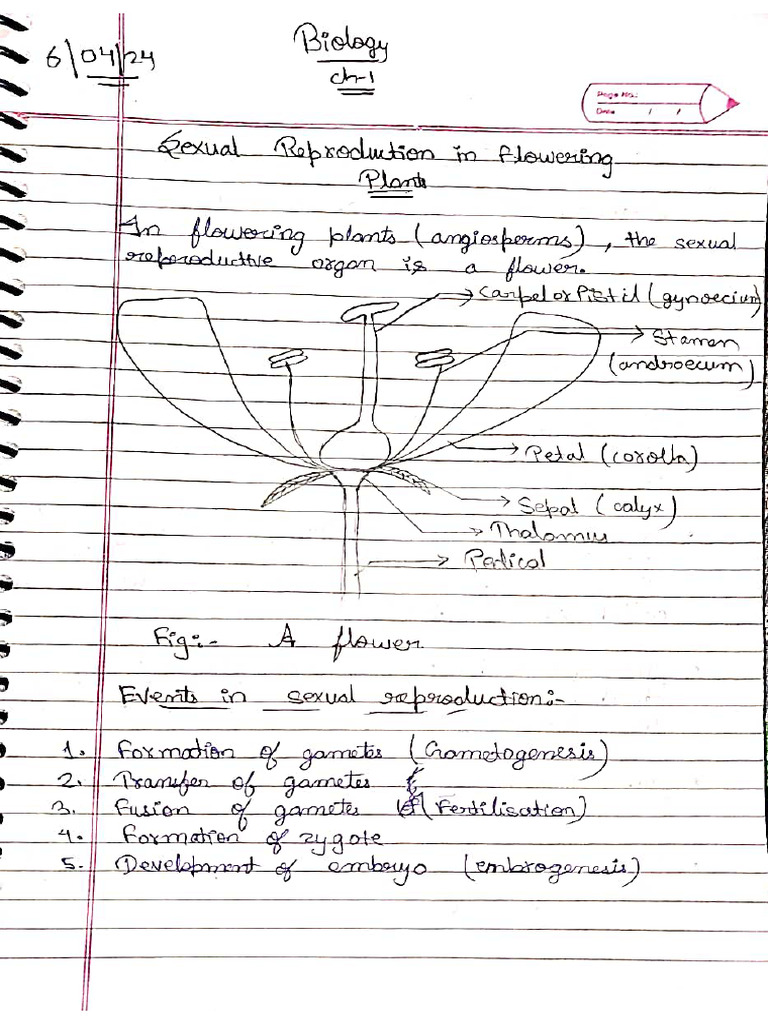 6/04/24
Biology
ch-1
Page No.:
Date / /
Sexual Reproduction in flowering
Plants
In flowering plants (angiosperms), the sexual
reproductive organ is a flower.
Carpel or Pistil (gynoecium)
Stamen
(androecum)
Petal (corolla)
Sepal (calyx)
Thalamus
Pedical
Fig:- A flower
Events in sexual reproduction:-
1. Formation of gametes (Gametogenesis)
2. Transfer of gametes
3. Fusion of gametes (Fertilisation)
4. Formation of zygote
5. Development of embryo (embrogenesis)